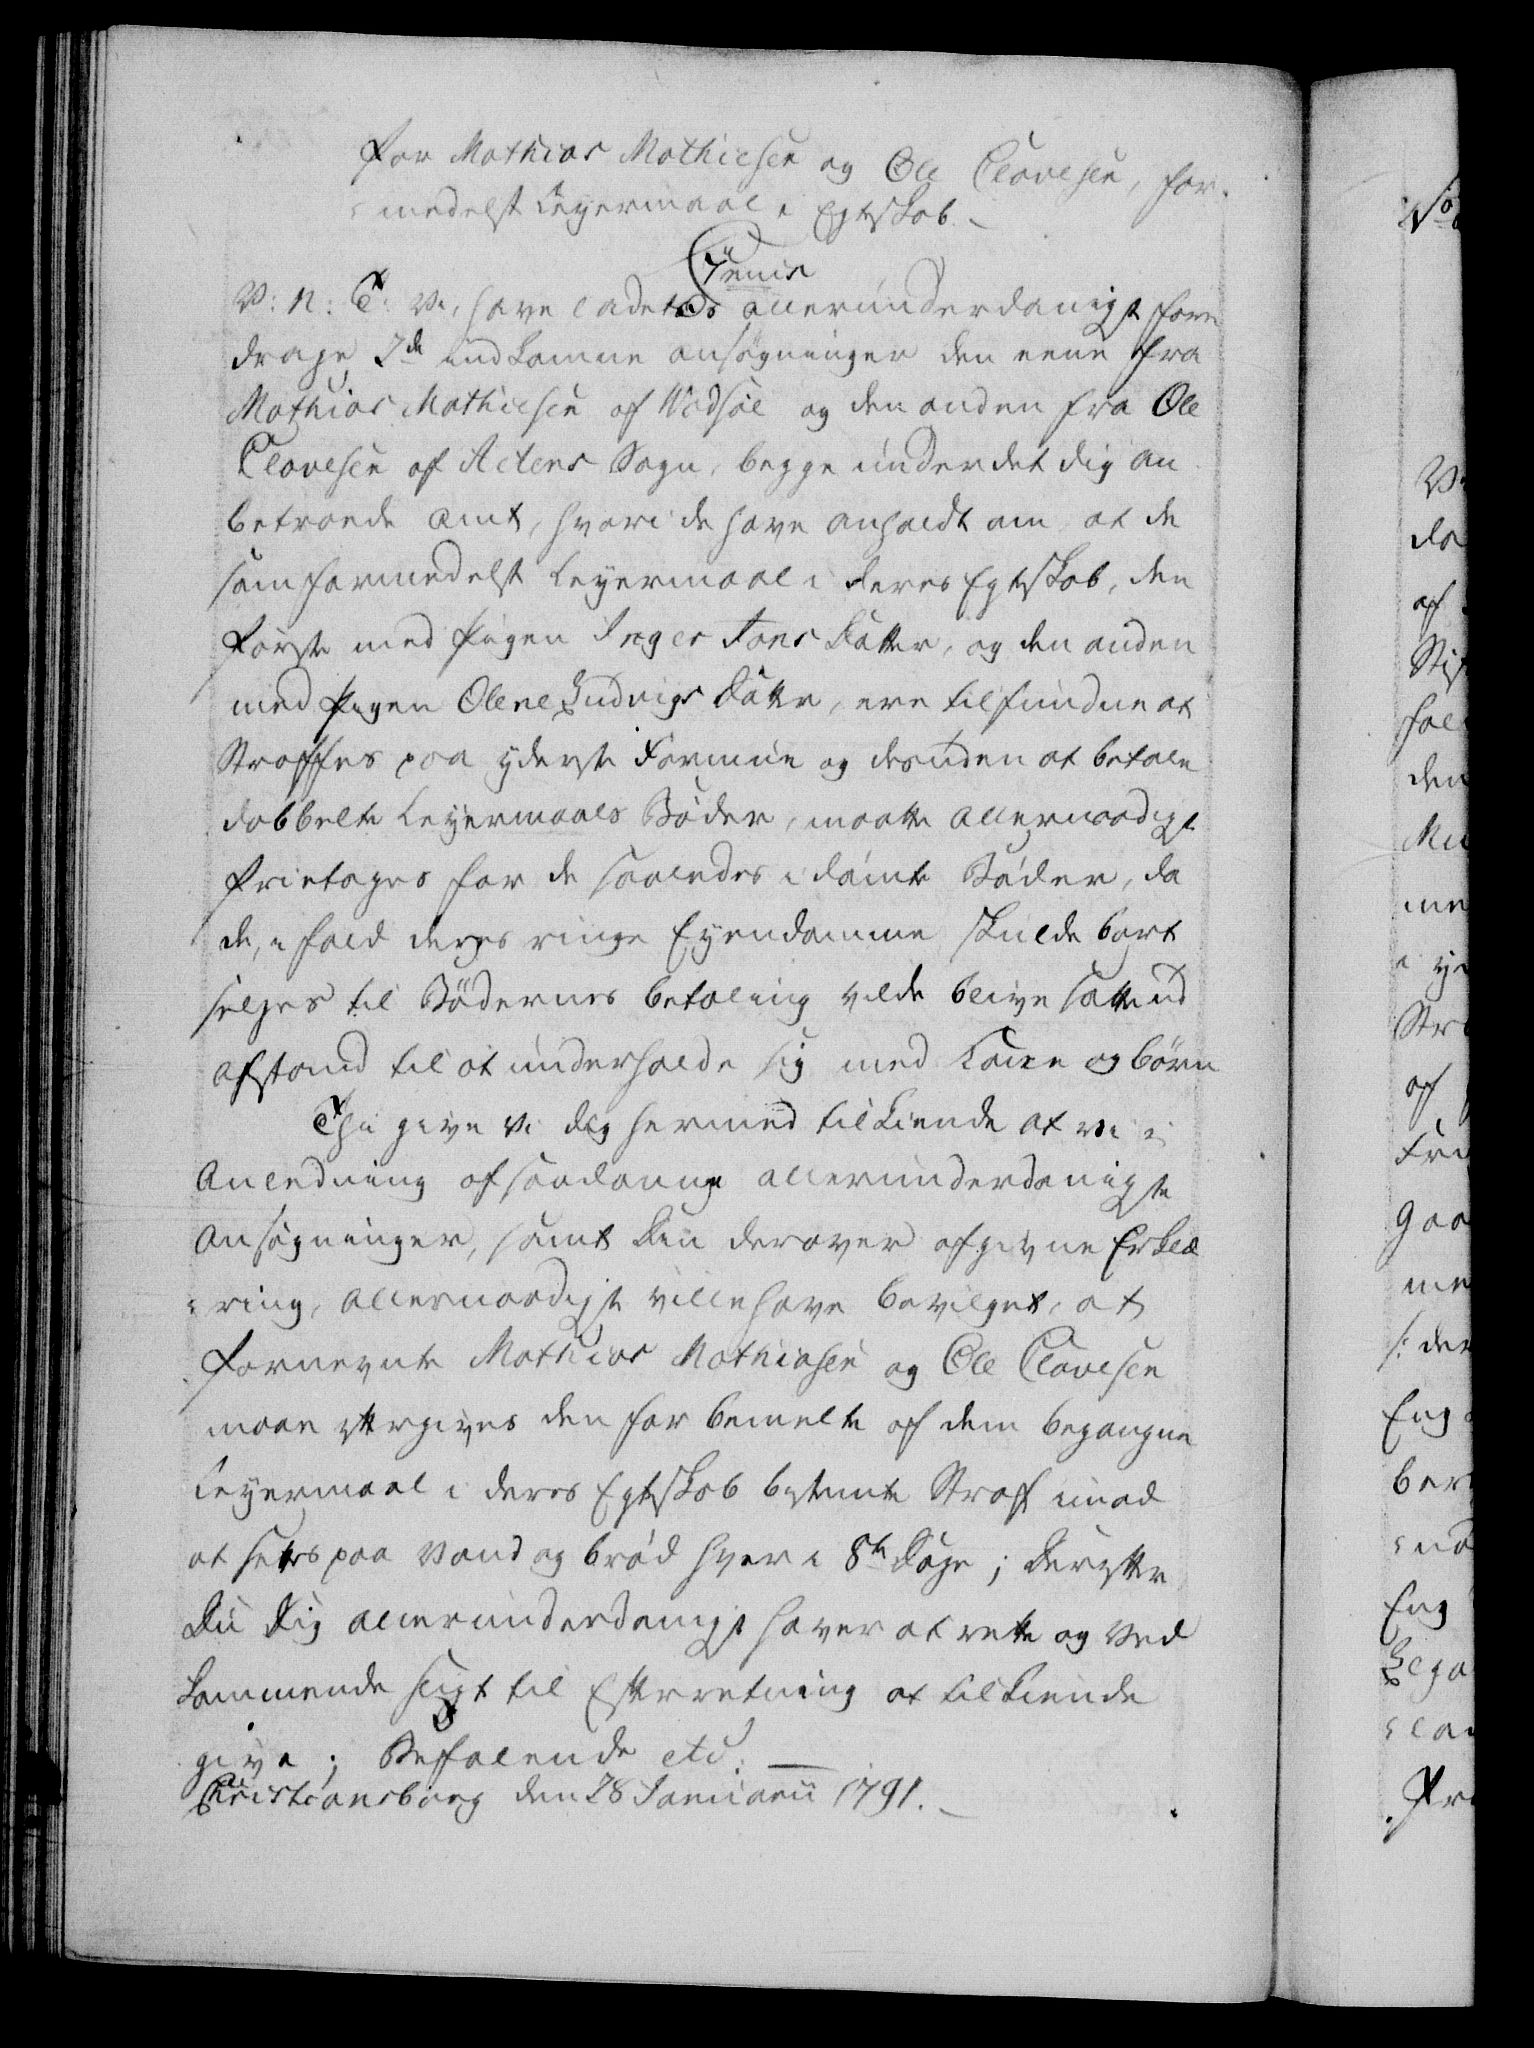 for Mathias Mathiesen og Ole Clavesen, for-
medelst Leyermaal i Egtskab. -
V: n: T: Vi have ladet os allerunderdanigst fore
drage 2de indkomne ansøgninger den eene fra
Mathias Mathiesen af Wadsøe og den anden fra Ole
Clavesen af Altens Sogn, begge under det dig an
betroede amt, hvori de have anholdt om at de
som formedelst Leyermaal i deres Egtskab, den
første med Pigen Inger Jons Datter, og den anden
med Pigen Olene Ludvigs Datter, ere tilfundne at
Straffes paa yderste Formue og desuden at betale
dobbelte Leyermaals Bøder, maatte allernaadigst
fritages for de saaledes idømte Bøder, da
de, i fald deres ringe Eyendomme skulde bort
selges til Bødernes betaling vilde blive satte ud
afstand til at underholde sig med Kone og børn
Thi give Vi dig hermed tilkiende at vi i
Anledning af saadanne allerunderdanigste
Ansøgninger, samt Din derover afgivne Erklæ
ring, allernaadigst ville have bevilget, at
fornevnte Mathias Mathiasen og Ole Clavesen
maae eftergives den for bemelte af dem begangne
Leyermaal i deres Egtskab bestemte Straf imod
at settes paa Vand og brød hver i 8te Dage; Derefter
Du Dig allerunderdanigst haver at rette og Ved
kommende sligt til Efterretning at tilkiende
give; Befalende etc. —
Christiansborg den 28 Januarii 1791. -